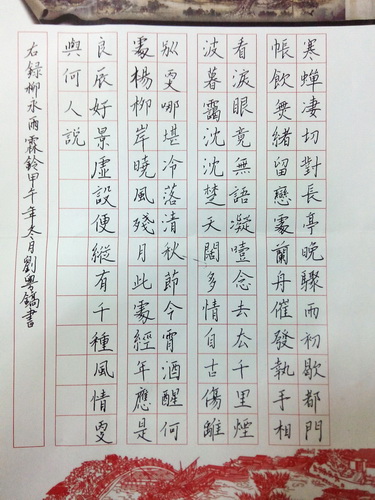 寒蟬淒切對長亭晚驟雨初歇都門
帳飲無緒留戀處蘭舟催發執手相
看淚眼竟無語凝噎念去厺千里煙
波暮靄沈沈楚天闊多情自古傷離
別更哪堪冷落清秋節今宵酒醒何
處楊柳岸曉風殘月此處經年應是
良辰好景虛設便縱有千種風情更
與何人說
右錄柳永雨霖鈴甲午年冬月劉粵鎬書